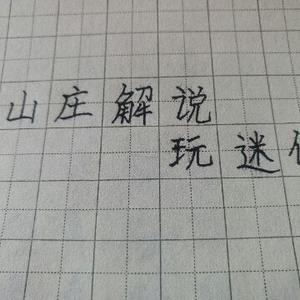 山庄解说
玩迷